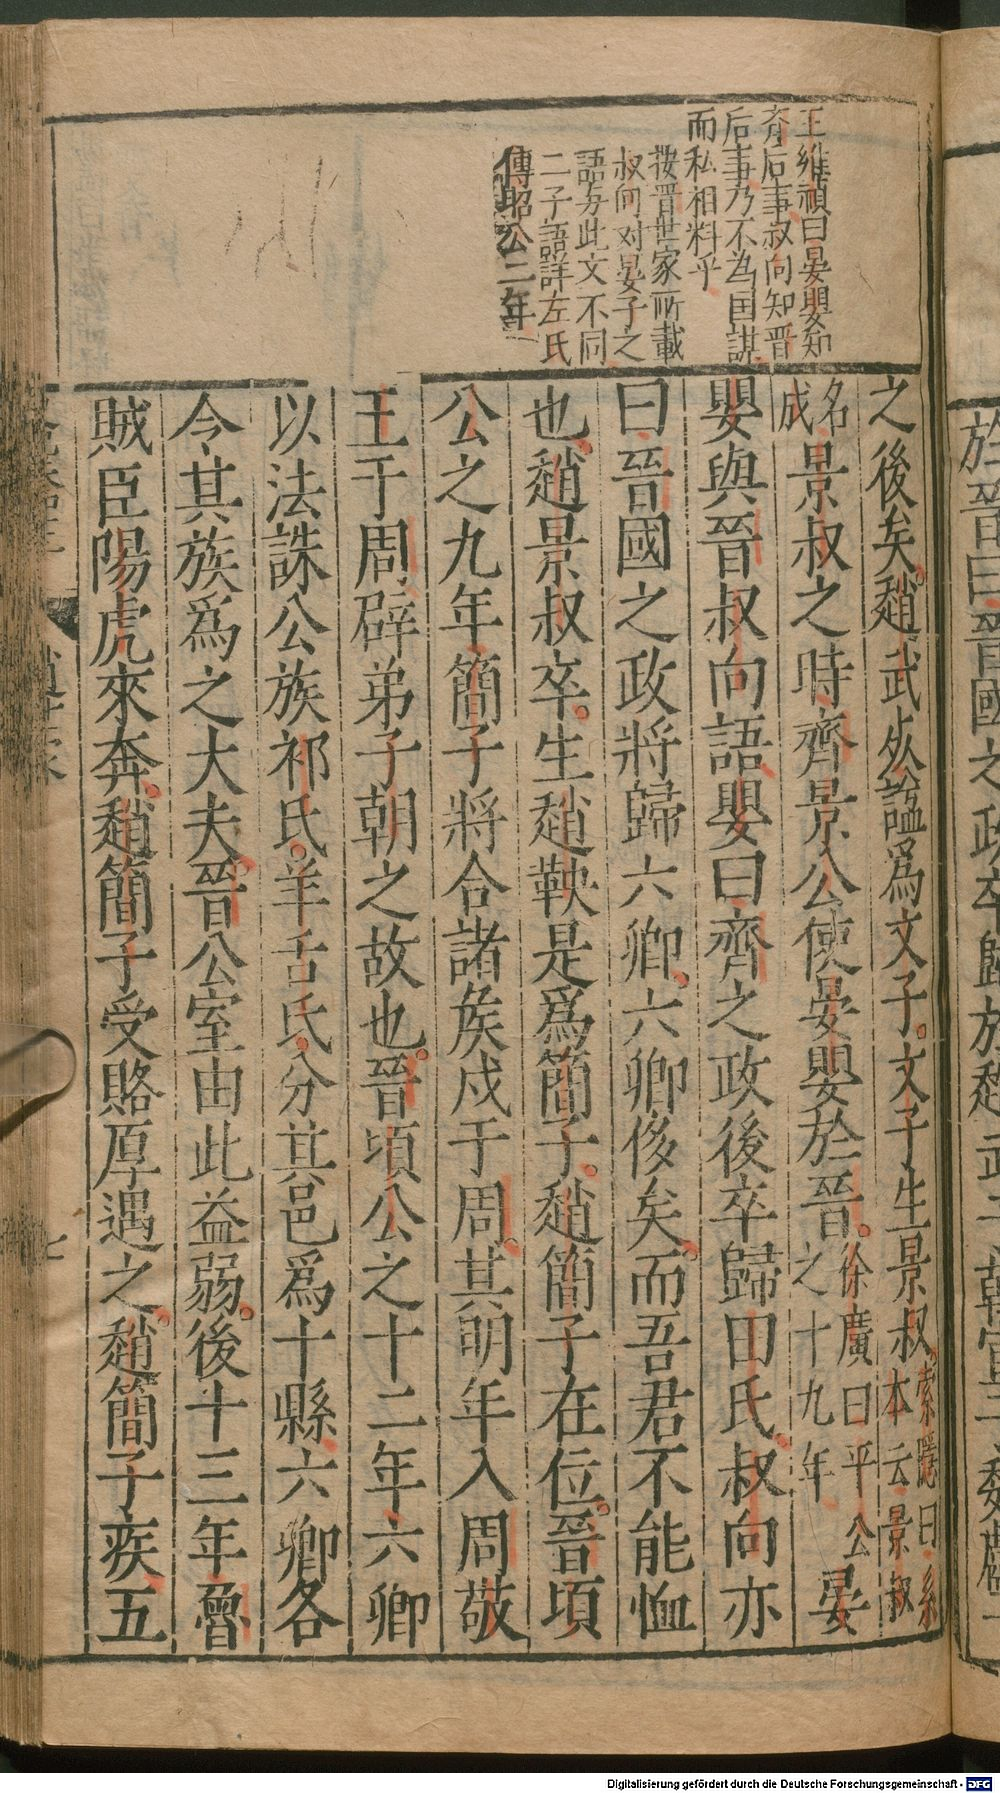 於晉曰晉國之政卒歸於趙武子韓宣子魏獻子
王維禎曰晏嬰知
齊后事叔向知晉
后事乃不為国謀
而私相料乎
按晋世家所載
叔向对晏子之
語与此文不同
二子語詳左氏
傳昭公二年
之後矣趙武死諡爲文子文子生景叔
索隱曰系
本云景叔
名
成
景叔之時齊景公使晏嬰於晉
徐廣曰平公
之十九年
晏
嬰與晉叔向語嬰曰齊之政後卒歸田氏叔向亦
曰晉國之政將歸六卿六卿侈矣而吾君不能恤
也趙景叔卒生趙鞅是爲簡子趙簡子在位晉頃
公之九年簡子將合諸矦戍于周其明年入周敬
王于周辟弟子朝之故也晉頃公之十二年六卿
以法誅公族祁氏羊舌氏分其邑爲十縣六卿各
今其族爲之大夫晉公室由此益弱後十三年魯
賊臣陽虎來奔趙簡子受賂厚遇之趙簡子疾五
七
Digitalisierung gefördert durch die Deutsche Forschungsgemeinschaft - DFG